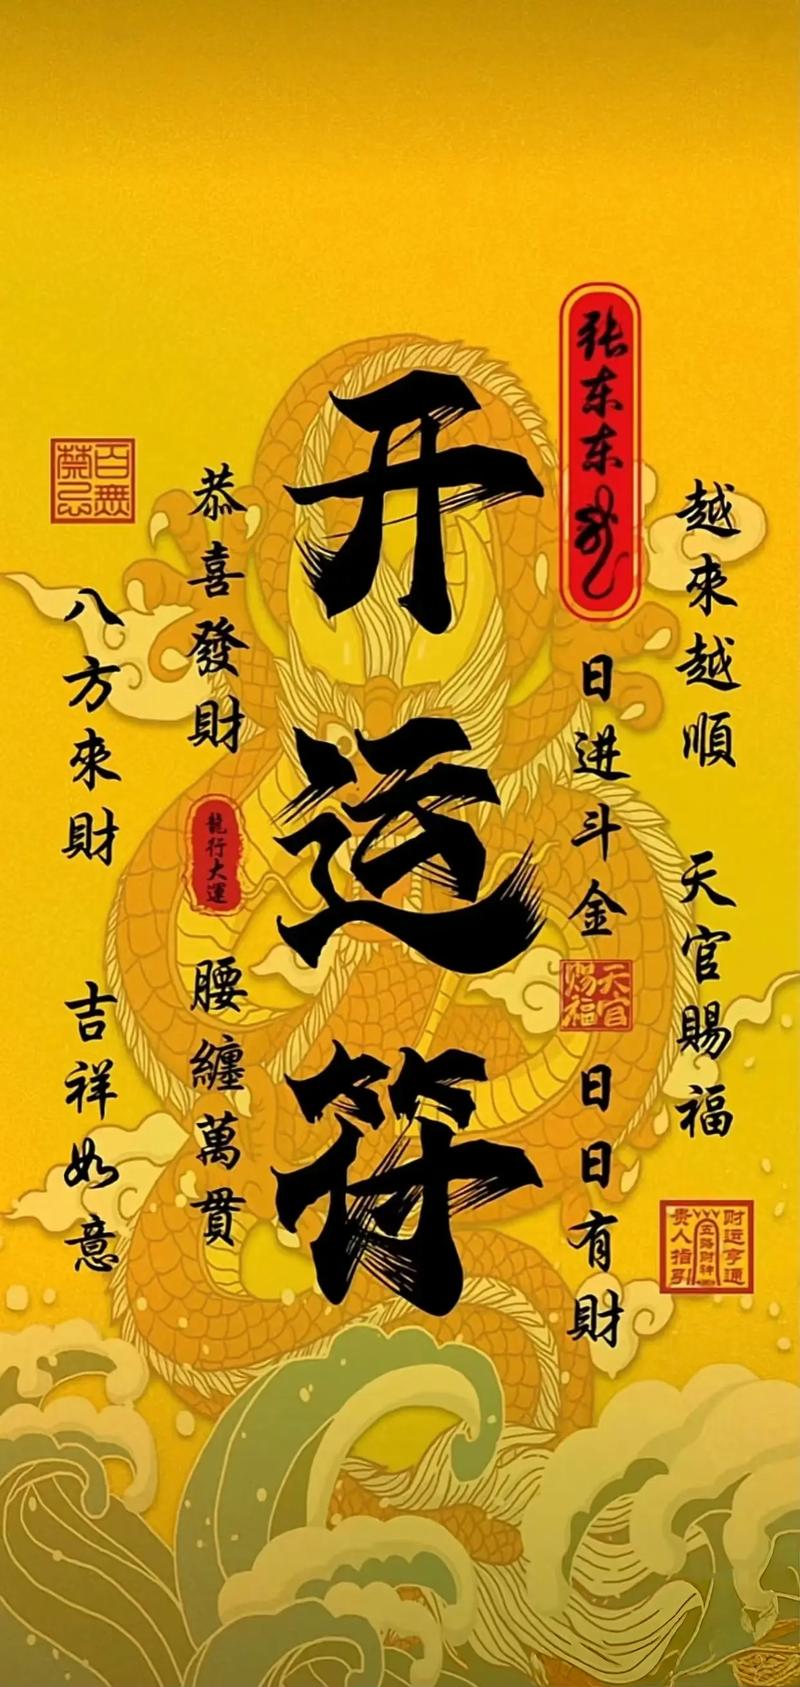 越來越順
天官賜福
财运亨通
五路财神
贵人指引
张东东
日进斗金
天官赐福
日日有財
开运符
恭喜發財
龍行大運
腰纏萬貫
百無禁忌
八方來財
吉祥如意